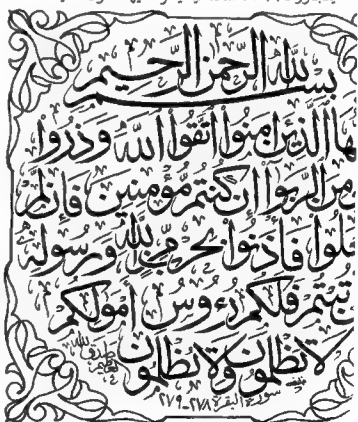 بسم الله الرحمن الرحيم
ها الذين امنوا اتقوا الله وذروا
من الربوا ان كنتم مؤمنين فإن لم
علوا فأذنوا بحرب من الله ورسوله
تبتم فلكم رءوس امولكم
لا تظلمون ولا تظلمون
سورة البقرة ٢٧٨-٢٧٩